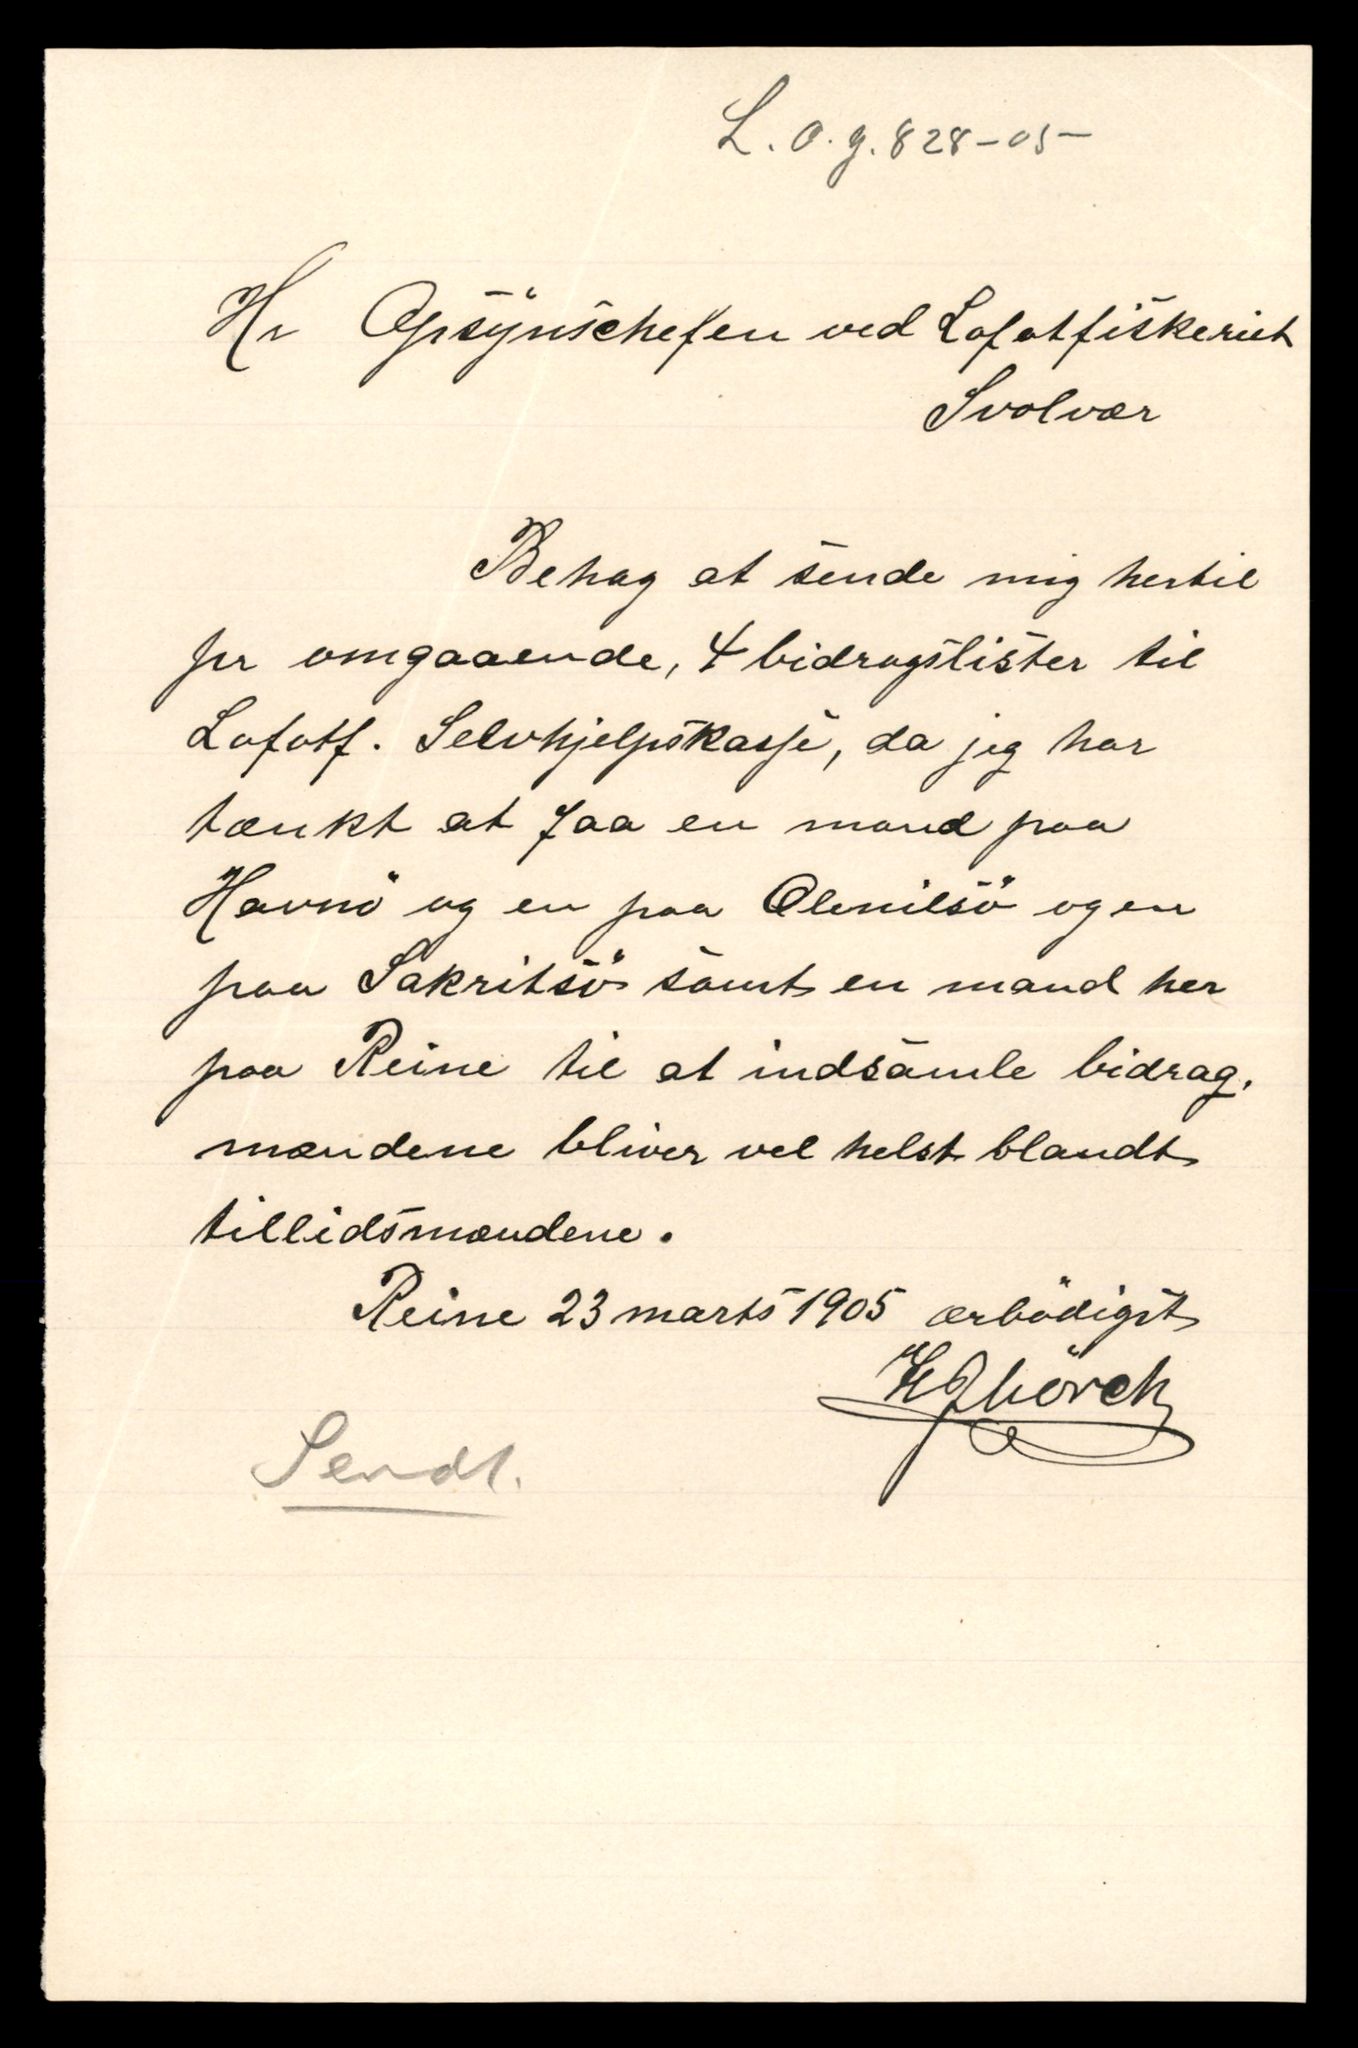 L. O. g. 828-05-
Hr Opsynschefen ved Lofotfiskeriet
Svolvær
Behag at sende mig hertil
pr omgaaende, 4 bidragslister til
Lofotf. Selvhjelpskasse, da jeg har
tænkt at faa en mand paa
Havnö og en paa Olenilsö og en
paa Sakritsö samt en mand her
paa Reine til at indsamle bidrag.
mændene bliver vel helst blandt
tillidsmændene.
Reine 23 marts 1905 ærbödigst
Sendt.